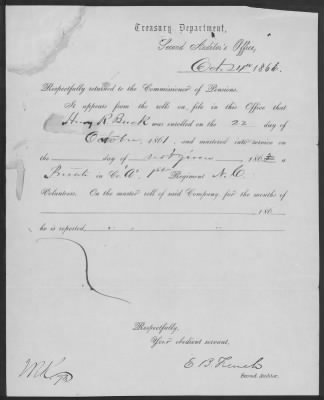 Treasury Department,
Second Auditor's Office,
Oct. 24th 1866.
Respectfully returned to the Commissioner of Pensions.
It appears from the rolls on file in this Office that
R Buck was enrolled on the 22 day of
October, 1861, and mustered into service on
the day of not given 186 a
in Co. "A", 1st Regiment N. C.
Volunteers. On the muster roll of said Company for the months of
186
he is reported,
Respectfully,
Your obedient servant,
E B French
Second Auditor.